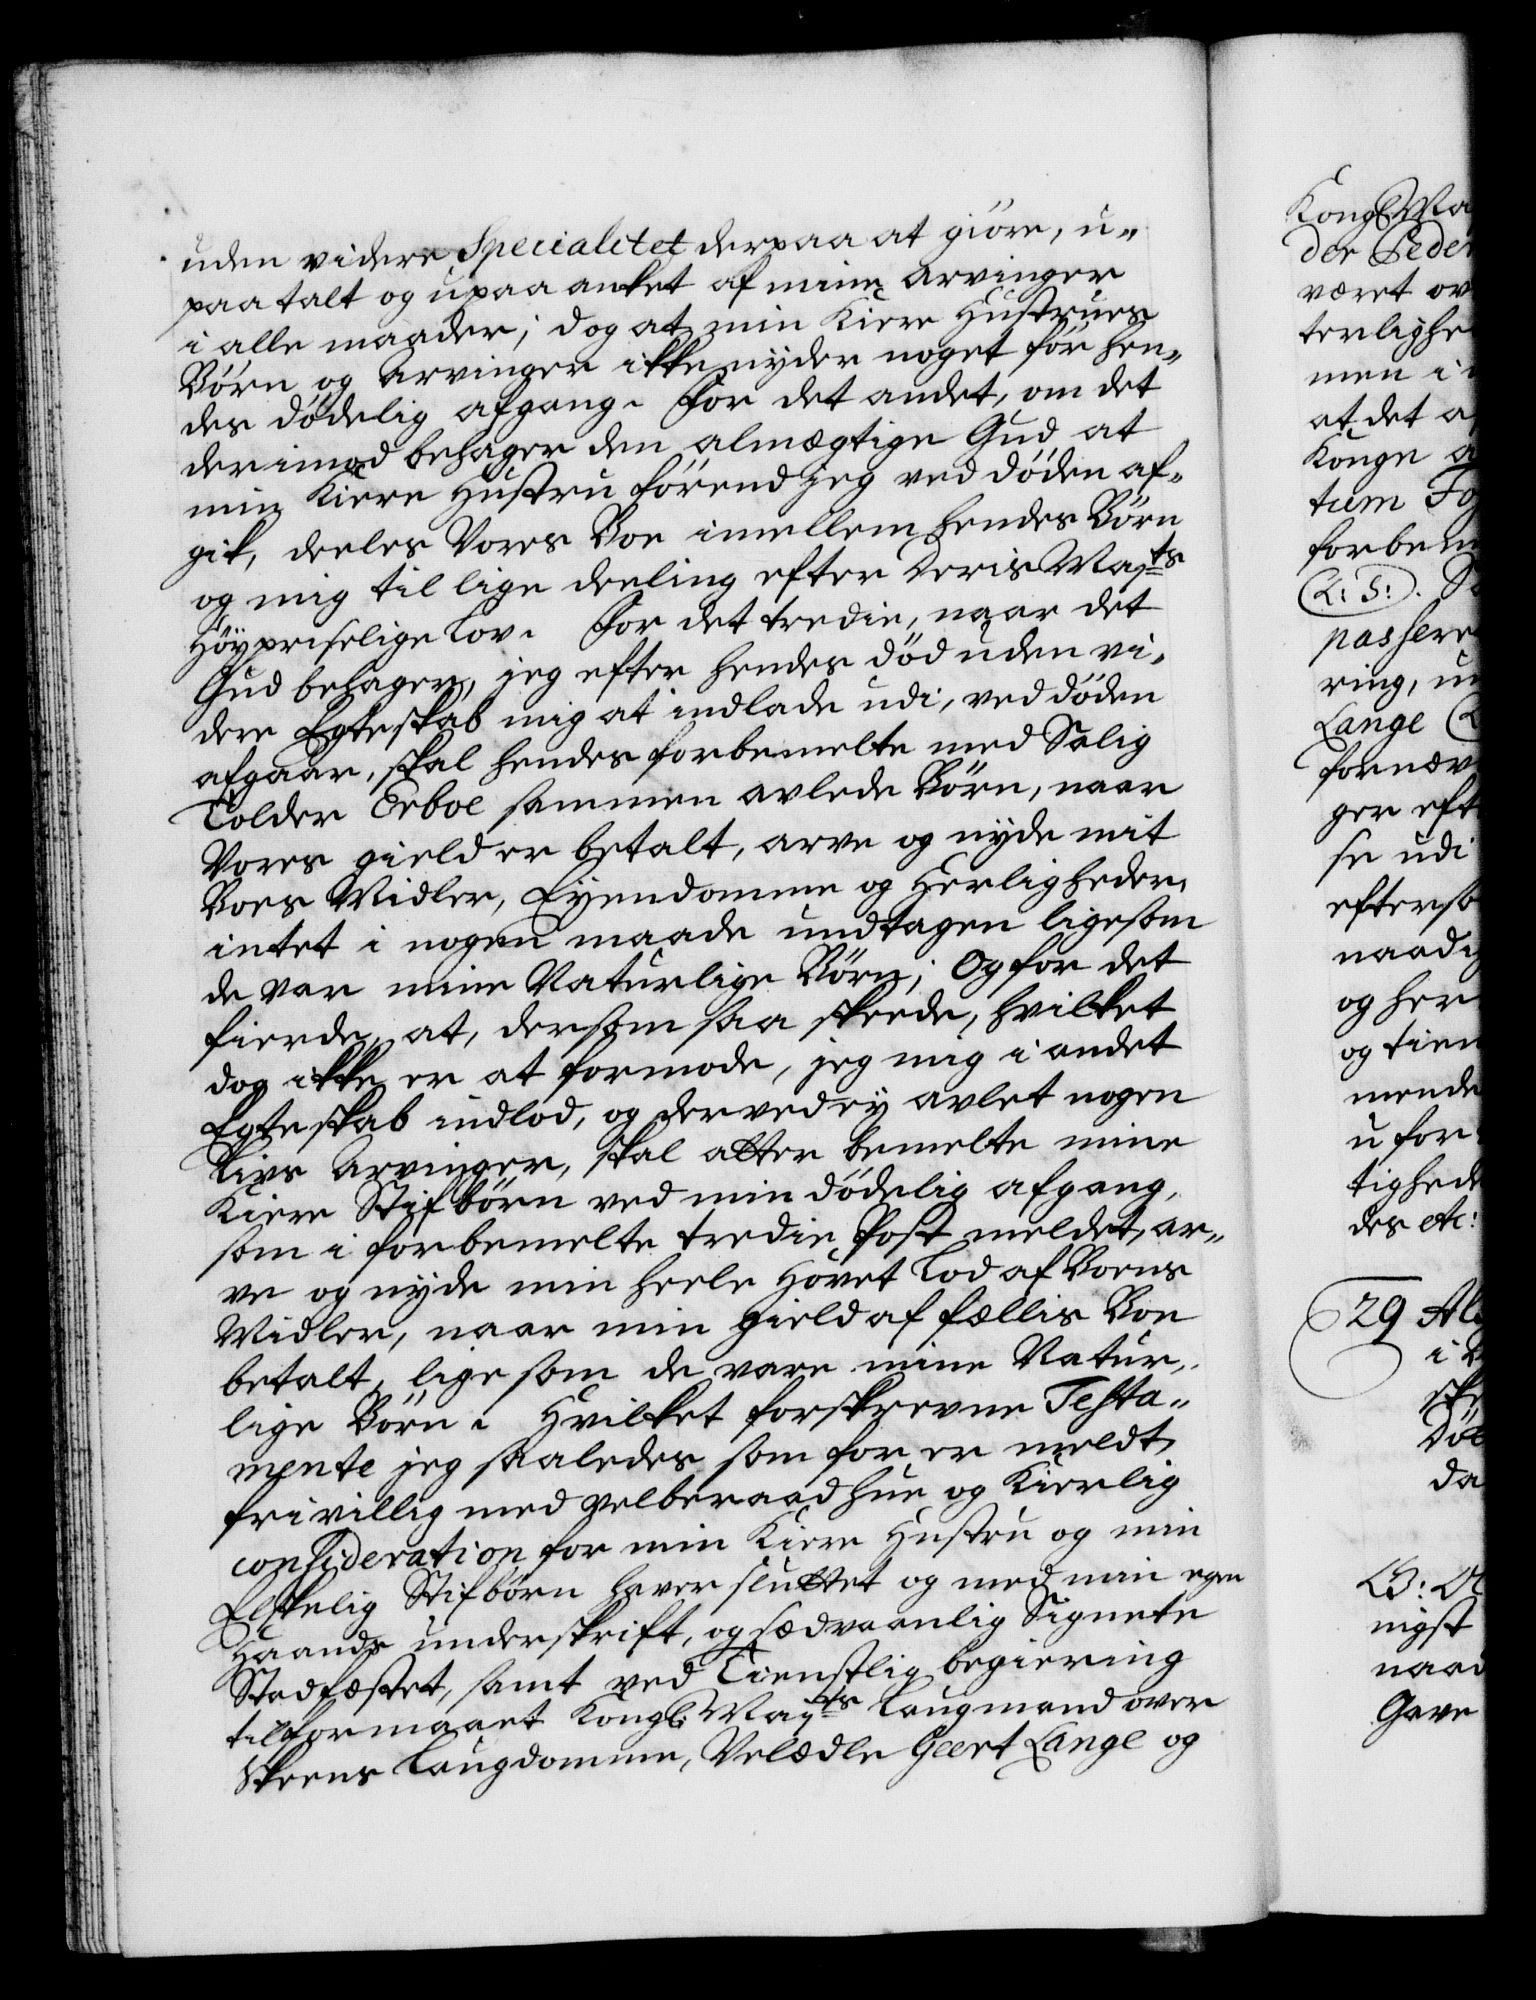 uden videre Specialitet derpaa at giöre, u„
paa talt og upaa anket af mine arvinger
i alle maader; dog at min Kiere Hustrues
Börn og arvinger ikke nyder noget för hen„
des dödelig afgang. For det andet, om det
derimod behager den almægtige Gud at
min Kiere Hustru förend jeg ved döden af„
gik, deeles Vores Boe imellem hendes Börn
og mig til lige deeling efter Deris Mayts
Höypriselige Lov. For det tredie, naar det
Gud behager, jeg efter hendes död uden vi„
dere Egteskab mig at indlade udi, ved döden
afgaar, skal hendes forbemelte med Salig
Tolder Erboe sammen avlede Börn, naar
Vores gield er betalt, arve og nyde mit
Boes Midler, Eyendomme og Herligheder,
intet i nogen maade undtagen ligesom
de var mine Naturlige Börn; Og for det
fierde, at, dersom saa skeede, hvilket
dog ikke er at formode, jeg mig i andet
Egteskab indlod, og derved ey avlet nogen
Livs Arvinger, skal atter bemelte mine
Kiere Stifbörn ved min dödelig afgang,
som i forbemelte tredie Post meldet, ar„
ve og nyde min heele Hovet Lod af Boens
Midler, naar min gield af fællis Boe
betalt, lige som de vare mine Natur„
lige Börn. Hvilket forskrevne Testa„
mente jeg saaledes som for er meldt,
frivillig med velberaad hue og Kierlig
consideration for min Kiere Hustru og min
Elskelig Stifbörn haver sluttet og med min egen
Haands underskrift, og sædvaanlig Signete
Stadfæstet, samt ved Tienstlig begiering
tilformaaet Kongl. Mayts Laugmand over
Skeens Laugdomme, Velædle Geert Lange og
Kongl Ma
der Peder
været ov
terlighe
men i
at det a
Konge
tum
forbem
(L: S:).
passere
ring, u
Lange
fornæv
ger eft
se udi
efterso
naadig
og her
og tien
mende
u for
tighede
des etc:
29 Al
i
ske
da
nigst
naad
Gave